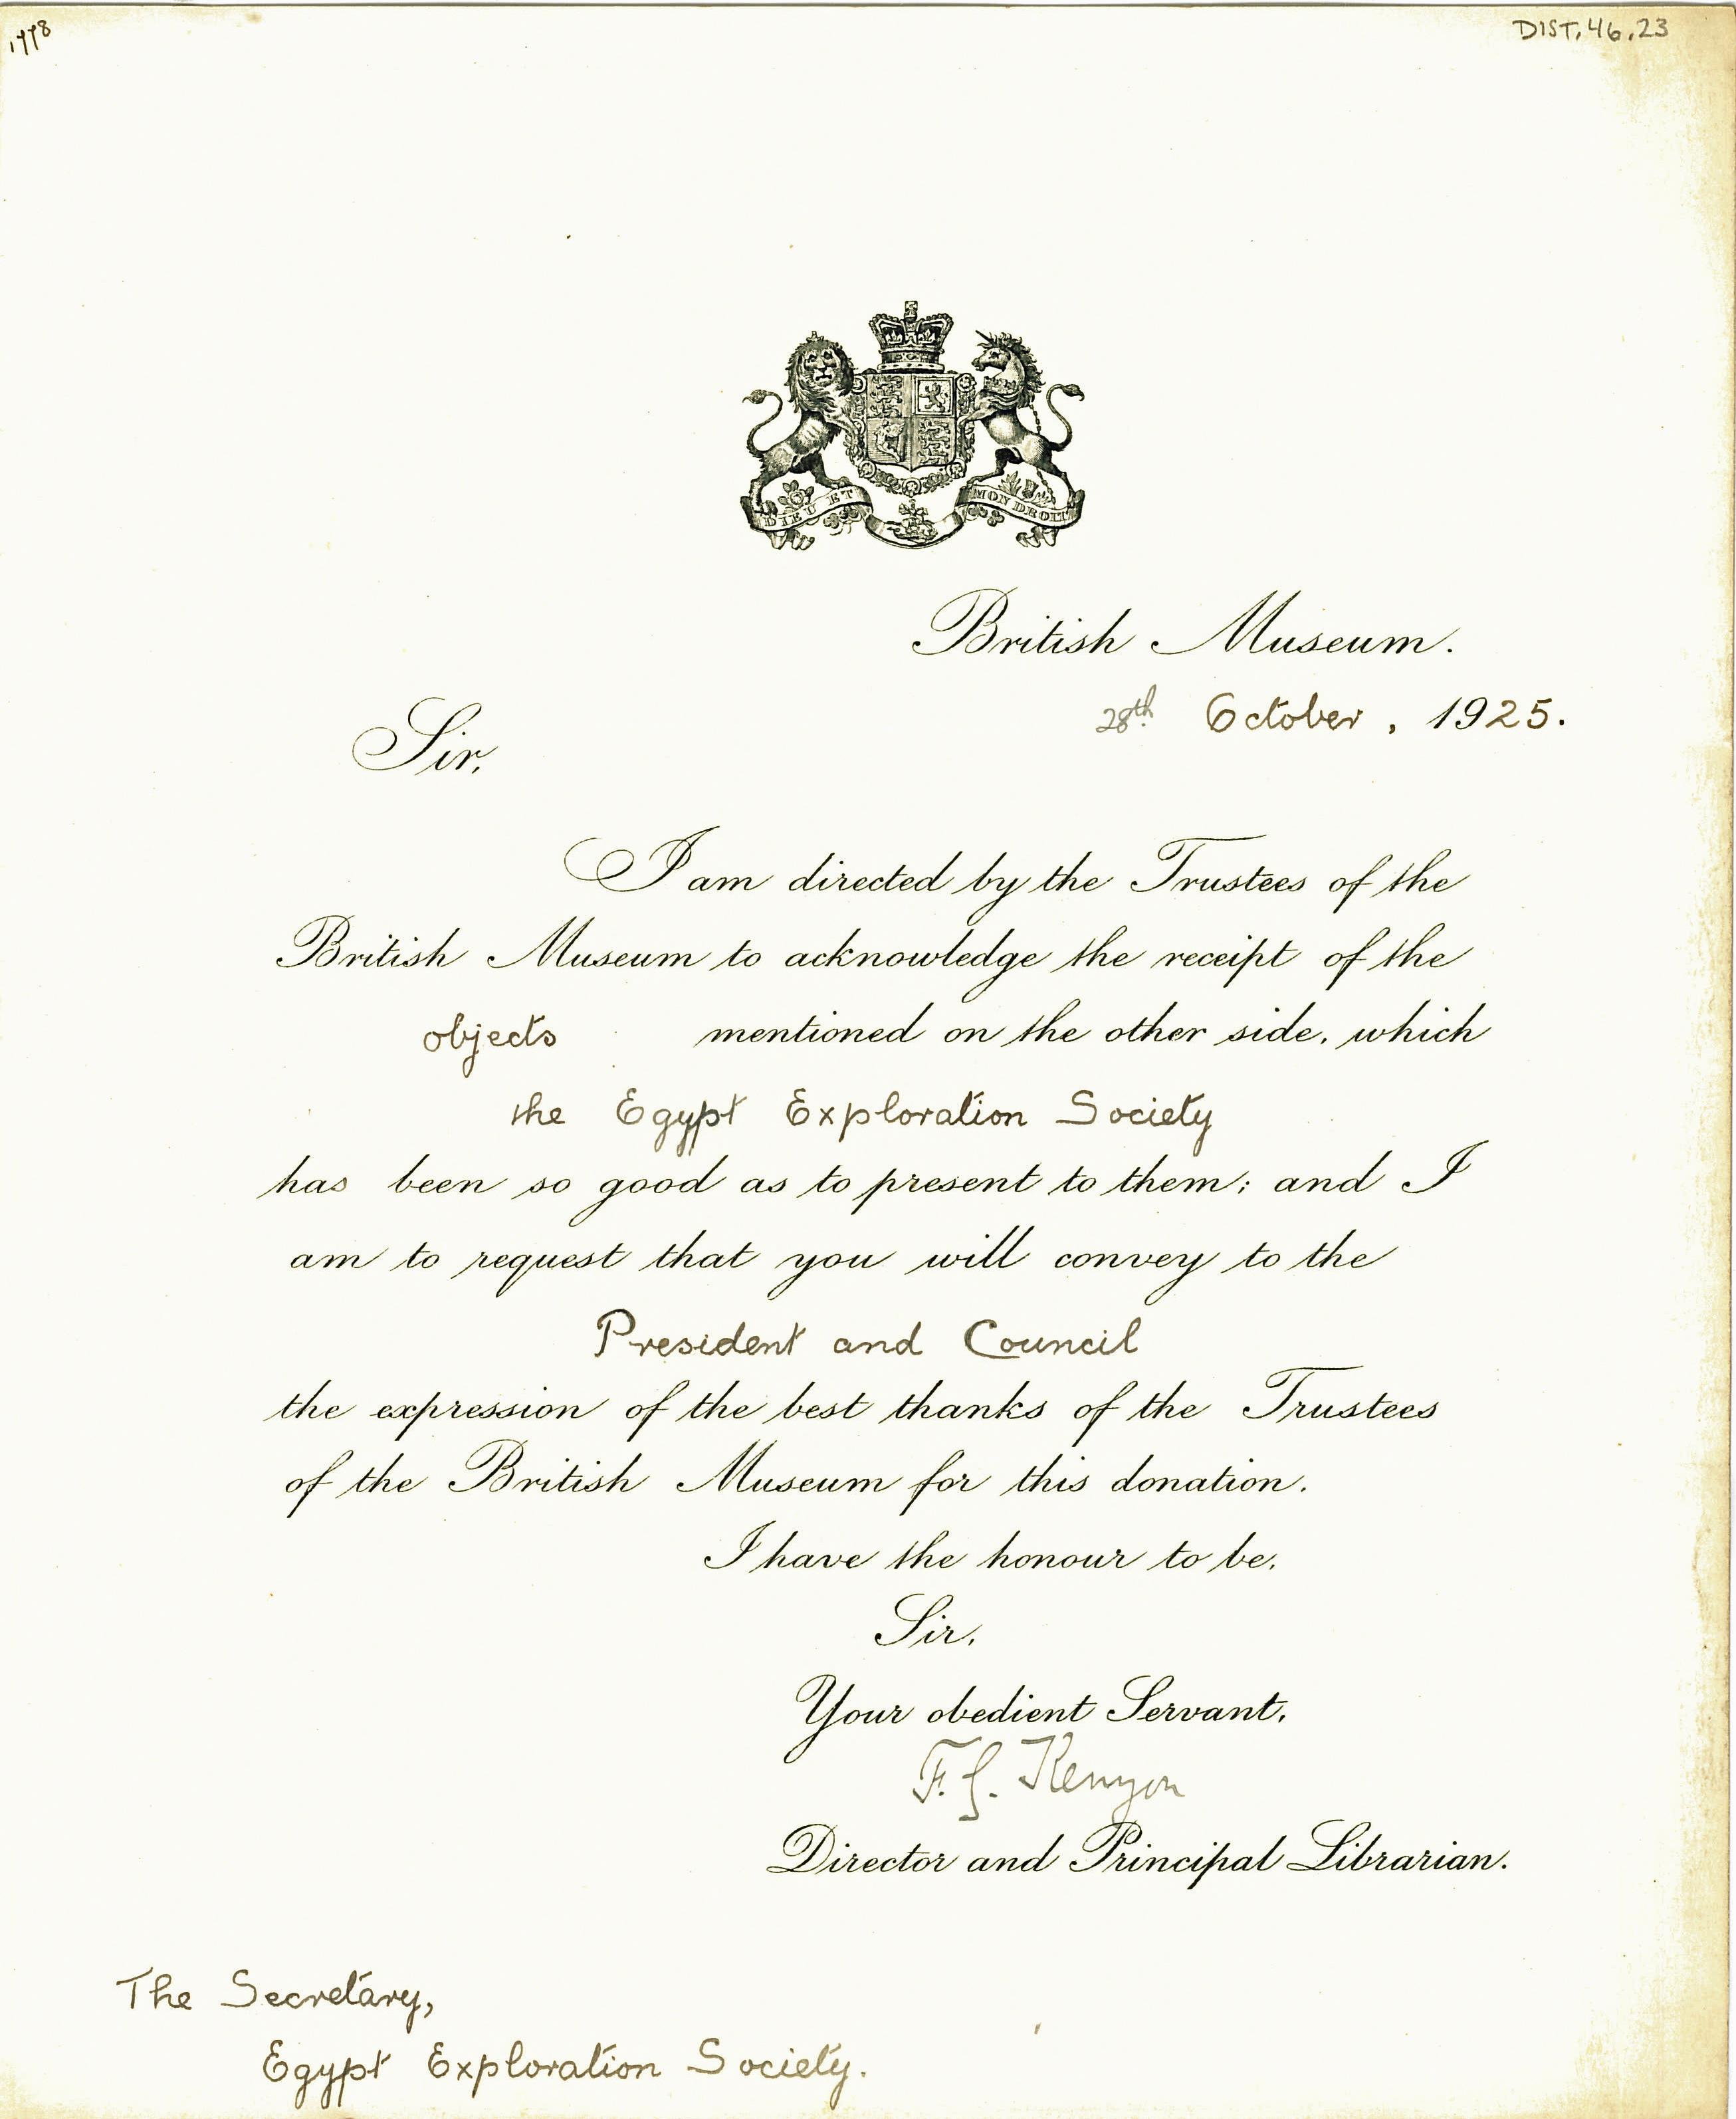 1778
DIST.46.23
DIEU ET MON DROIT
British Museum.
28th October, 1925.
Sir,
I am directed by the Trustees of the
British Museum to acknowledge the receipt of the
objects mentioned on the other side, which
the Egypt Exploration Society
has been so good as to present to them; and I
am to request that you will convey to the
President and Council
the expression of the best thanks of the Trustees
of the British Museum for this donation.
I have the honour to be,
Sir,
Your obedient Servant,
F. G. Kenyon
Director and Principal Librarian.
The Secretary,
Egypt Exploration Society.